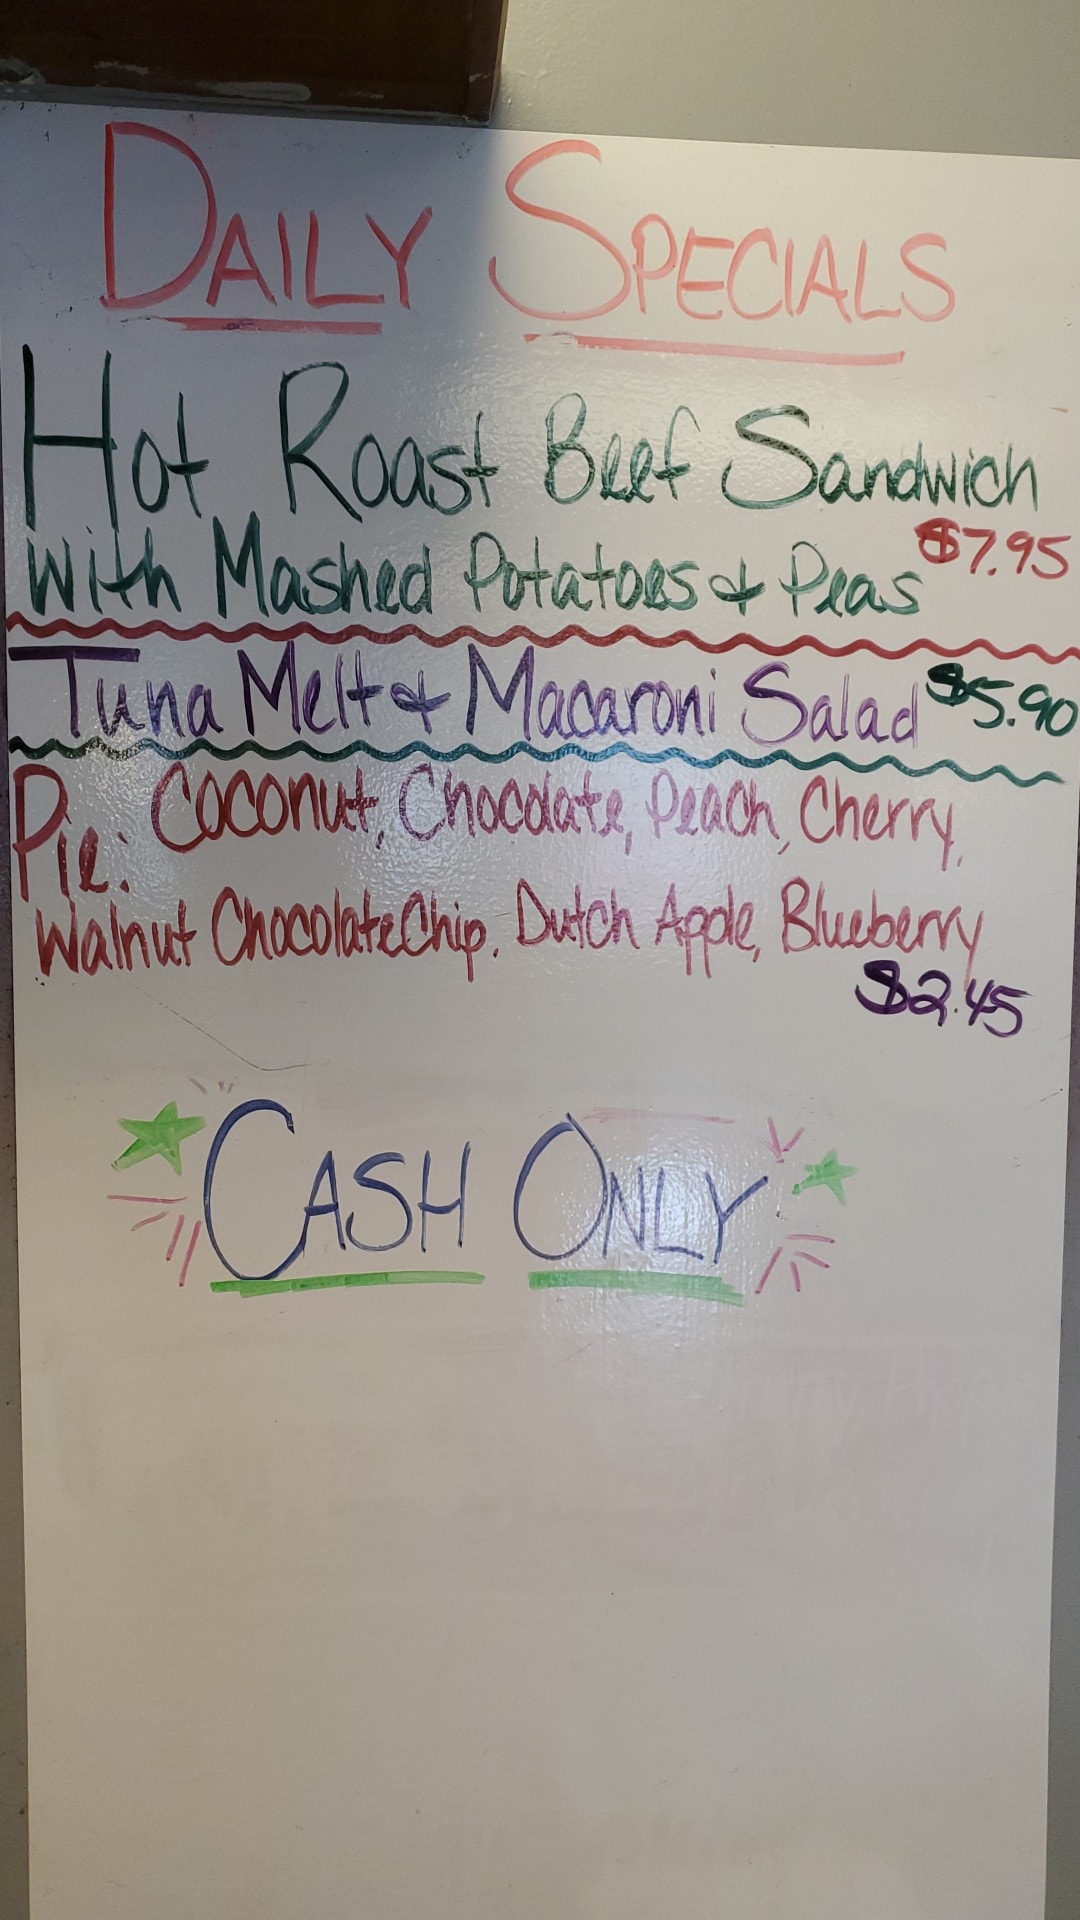 DAILY SPECIALS
Hot Roast Beef Sandwich
With Mashed Potatoes & Peas $7.95
Tuna Melt & Macaroni Salad $5.90
Pie: Coconut, Chocolate, Peach, Cherry,
Walnut Chocolate Chip. Dutch Apple, Blueberry
$2.45
CASH ONLY